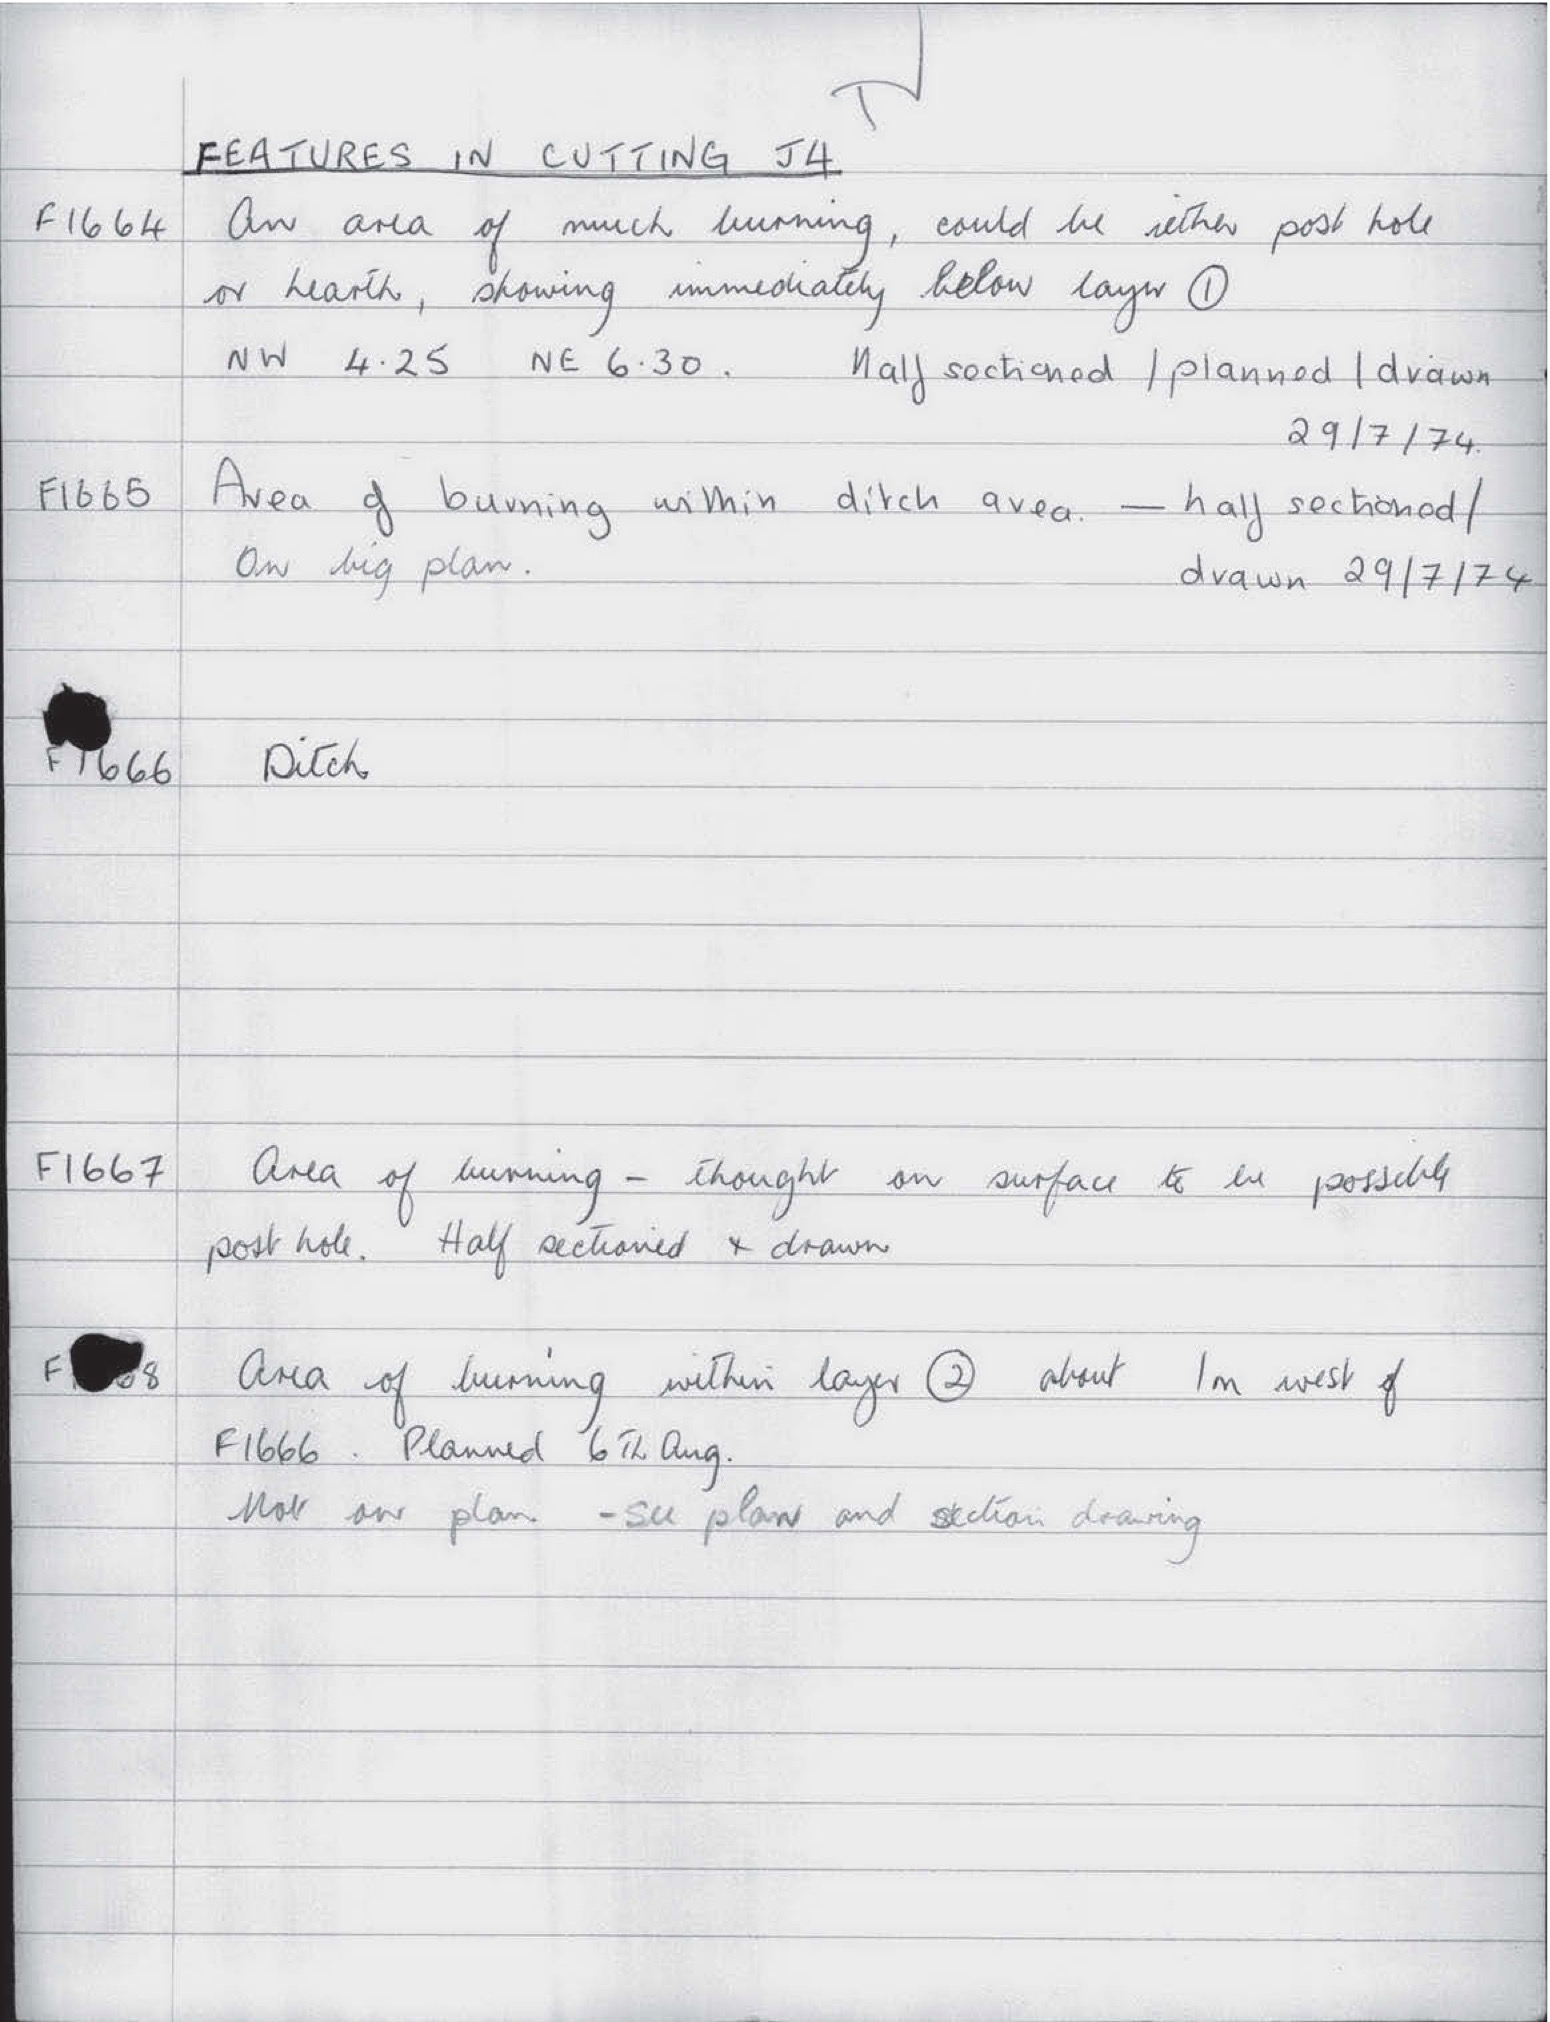 FEATURES IN CUTTING J4
F1664 An area of much burning, could be iether post hole
or hearth, showing immediately below layer ①
NW 4.25 NE 6.30. Half sectioned / planned / drawn
29/7/74.
F1665 Area of burning within ditch area. — half sectioned/
On big plan. drawn 29/7/74
F1666 Ditch
F1667 Area of burning – thought on surface to be possibly
post hole. Half sectioned & drawn
F 8 Area of burning within layer ② about 1m west of
F1666. Planned 6th Aug.
Not on plan. - see plan and section drawing